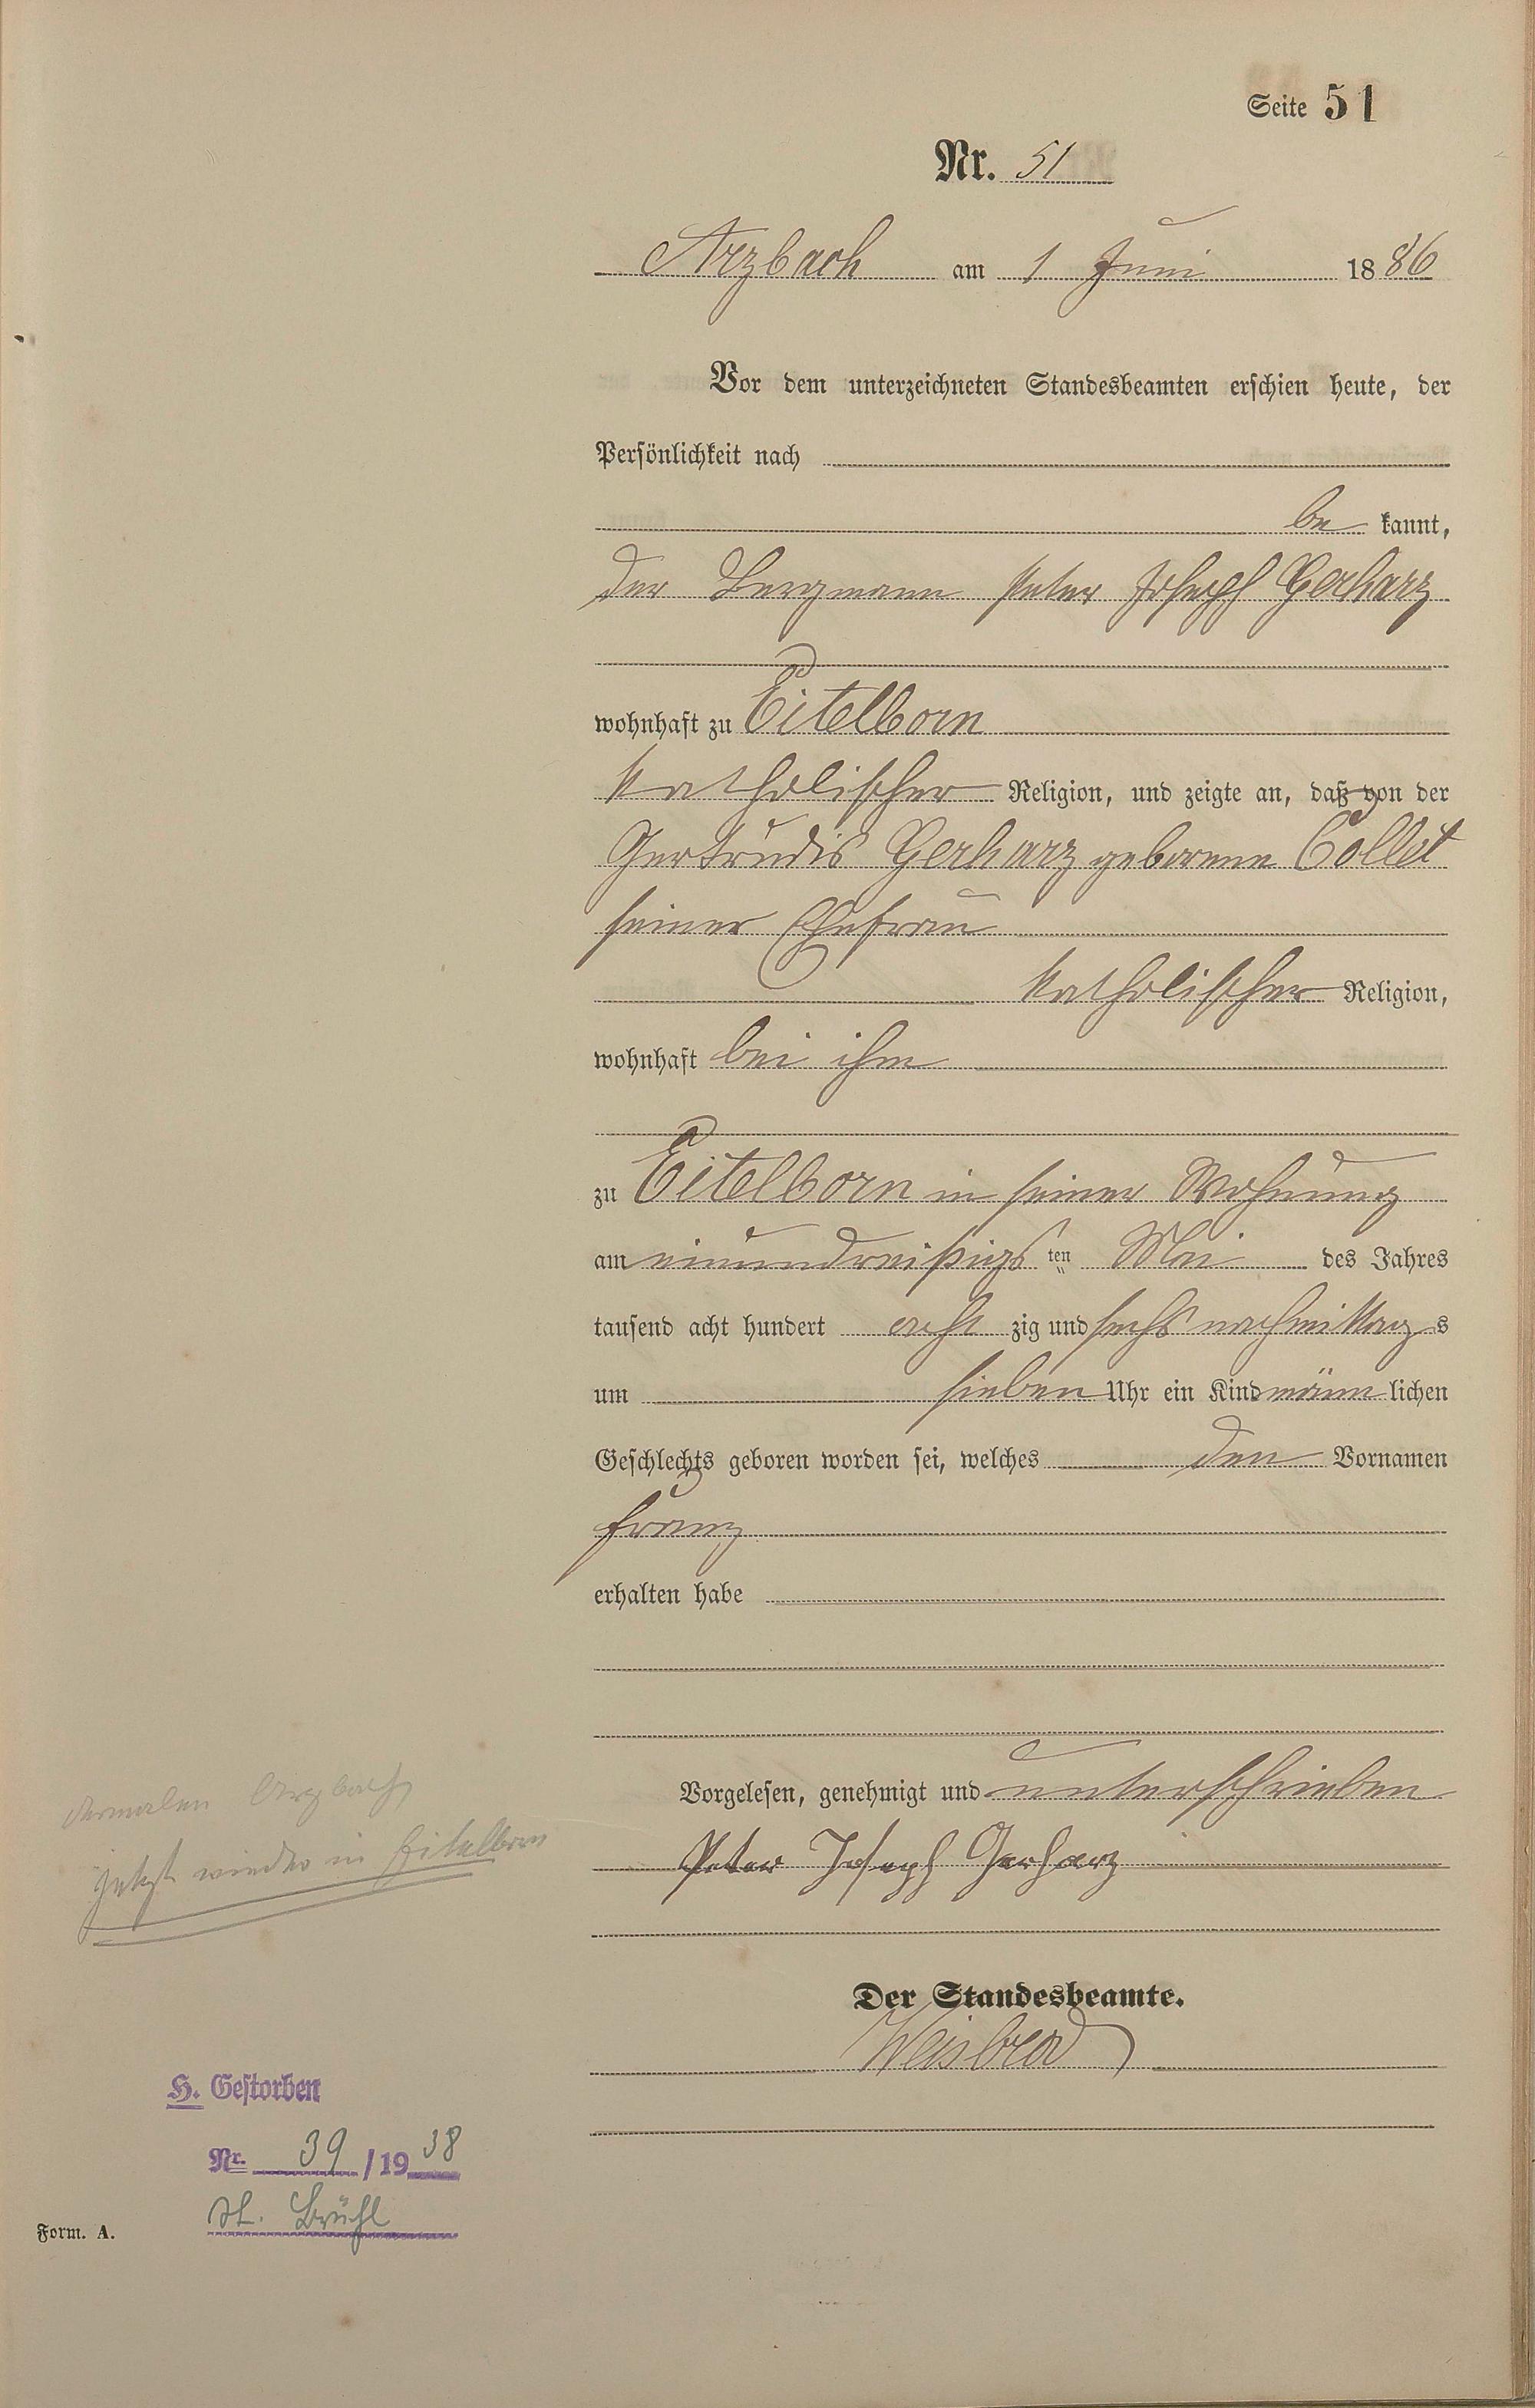 Seite 51
Nr. 51
Arzbach am 1 Juni 1886
Vor dem unterzeichneten Standesbeamten erschien heute, der
Persönlichkeit nach
be kannt,
der Bergmann Peter Joseph Gerharz
wohnhaft zu Eitelborn
katholischer Religion, und zeigte an, daß von der
Gertrudis Gerharz geborene Collet
seiner Ehefrau
katholischer Religion,
wohnhaft bei ihm
zu Eitelborn in seiner Wohnung
am einunddreißigs ten Mai des Jahres
tausend acht hundert acht zig und sechs nachmittags
um sieben Uhr ein Kind männ lichen
Geschlechts geboren worden sei, welches den Vornamen
Franz
erhalten habe
Vorgelesen, genehmigt und unterschrieben
Peter Joseph Gerharz
Der Standesbeamte.
Weisbrod
Arzbach
jetzt wieder in Eitelborn
H. Gestorben
Nr. 39 /19 38
St. Brühl
Form. A.